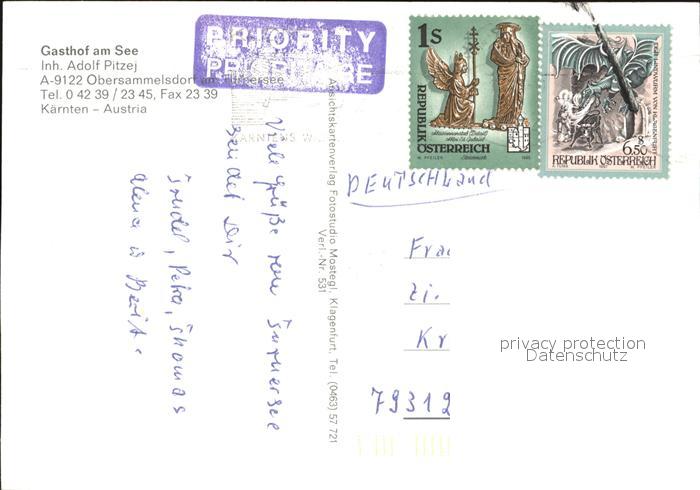 Gasthof am See
Inh. Adolf Pitzej
A-9122 Obersammelsdorf am Turnersee
Tel. 0 42 39 / 23 45, Fax 23 39
Kärnten – Austria
PRIORITY
PRIORITAIRE
KÄRNTENS
Viele Grüße vom Turnersee
sendet Dir
Trudel, Petra, Thomas
Ansichtskartenverlag Fotostudio Mostegl, Klagenfurt, Tel. (0463) 57 721
Verl.-Nr. 531
1s
REPUBLIK
ÖSTERREICH
W. PFEILER
Steiermark
6.50
REPUBLIK ÖSTERREICH
W. PFEILER
DER LINDWURM VON KLAGENFURT
DEUTSCHland
Frau
Kr
79312
privacy protection
Datenschutz